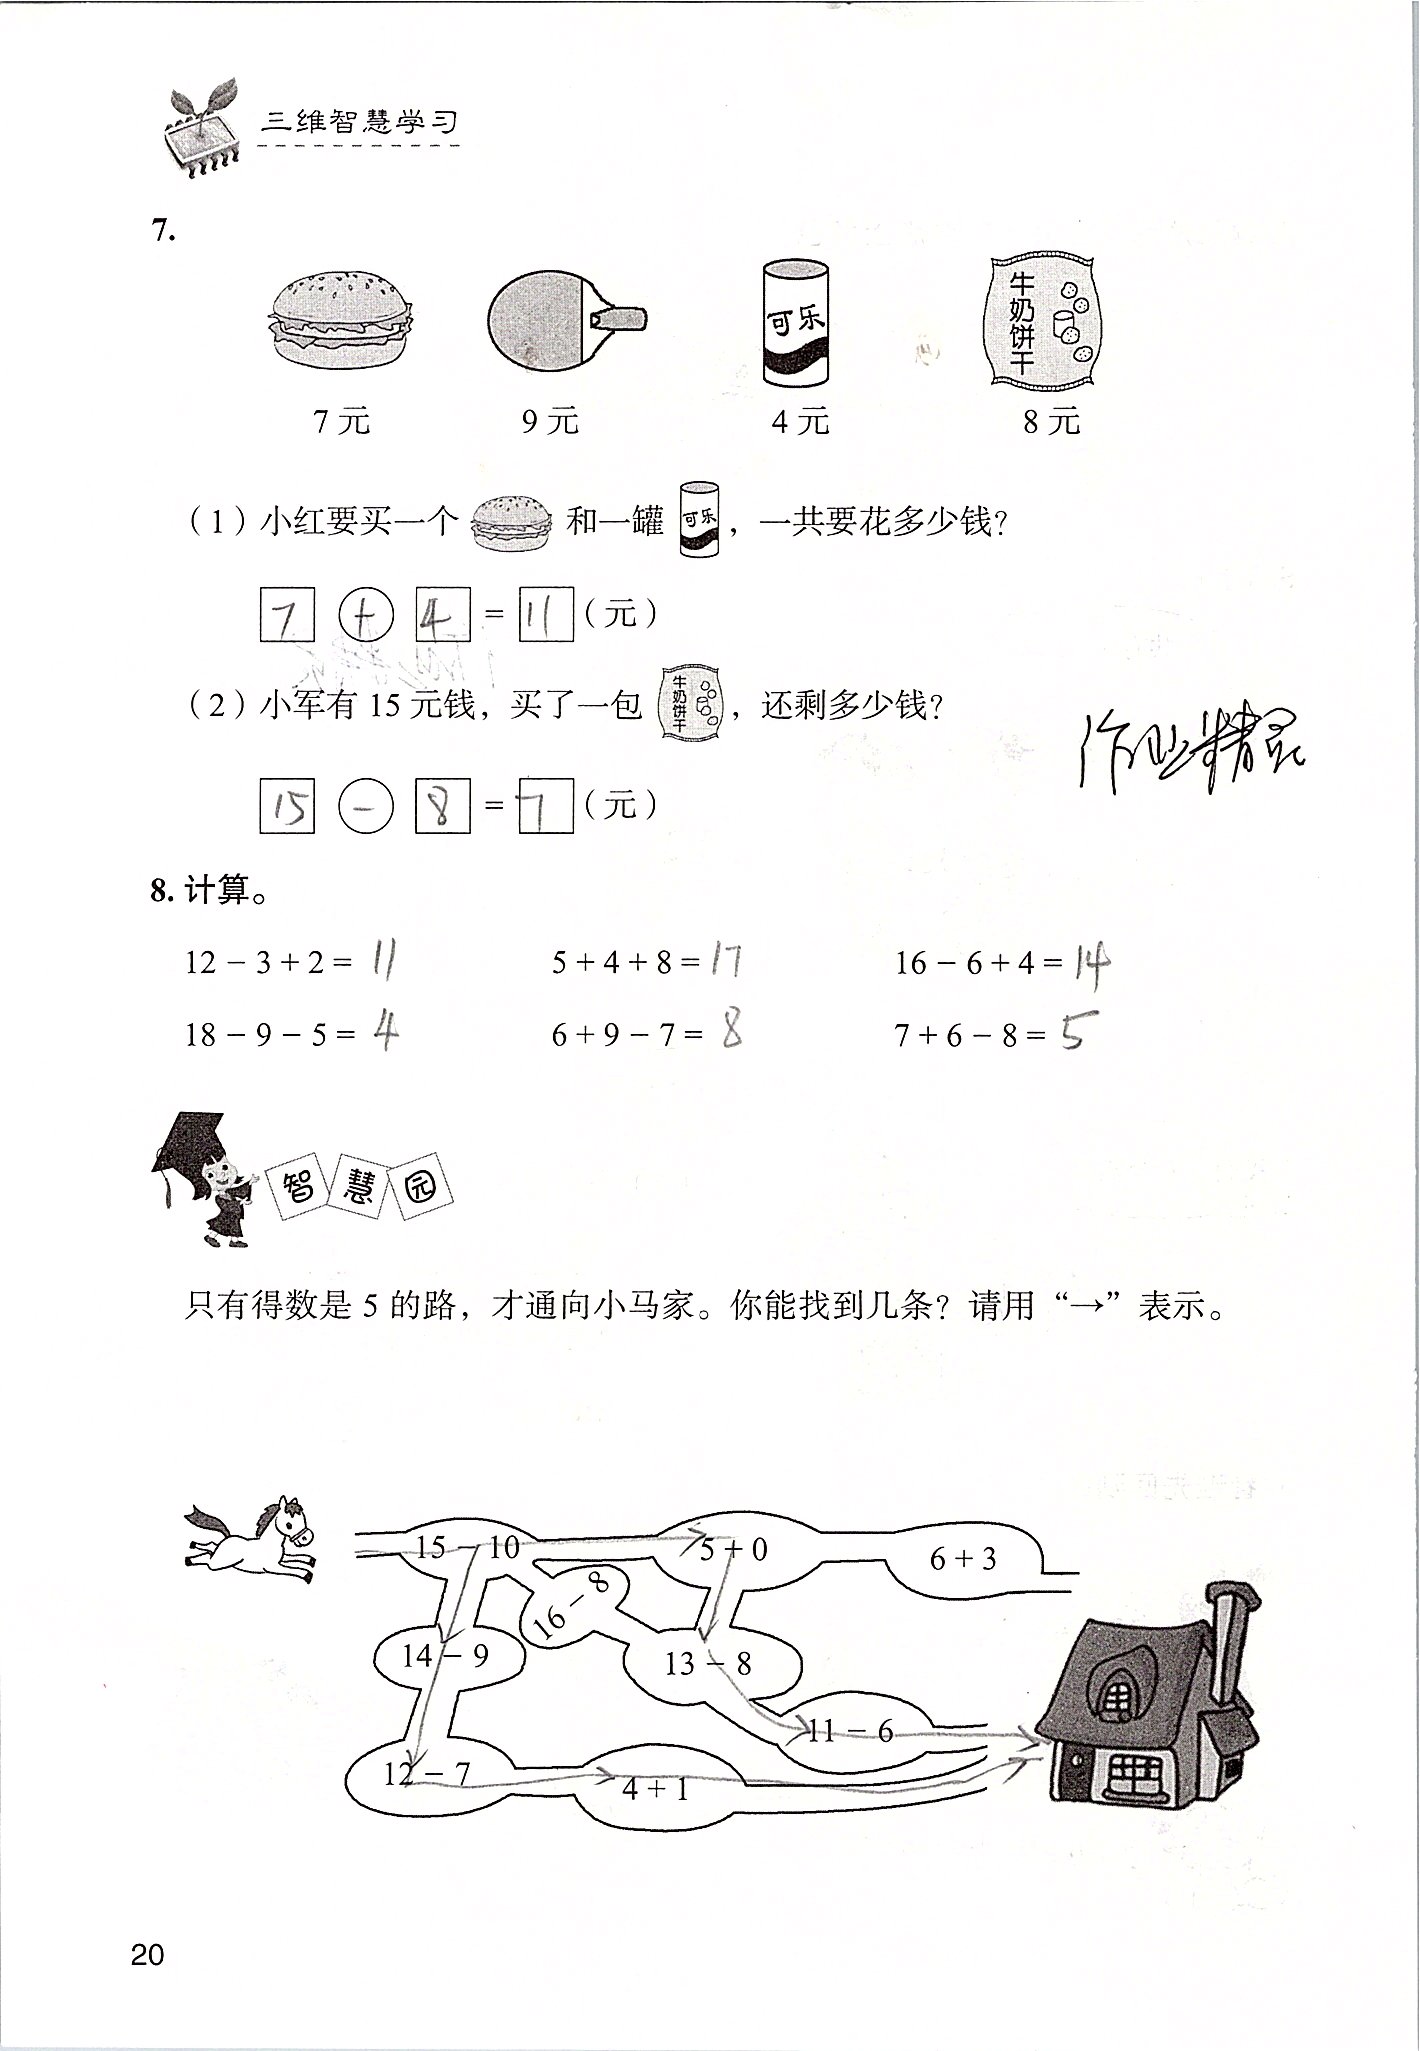 三维智慧学习
7.
可乐
牛奶饼干
7元 9元 4元 8元
(1)小红要买一个 和一罐 可乐 ,一共要花多少钱?
7 + 4 = 11 (元)
(2)小军有15元钱,买了一包 牛奶饼干 ,还剩多少钱?
作业精灵
15 - 8 = 7 (元)
8. 计算。
12-3+2= 11 5+4+8= 17 16-6+4= 14
18-9-5= 4 6+9-7= 8 7+6-8= 5
智慧园
只有得数是5的路,才通向小马家。你能找到几条?请用“→”表示。
15-10 5+0 6+3
16-8
14-9 13-8
11-6
12-7 4+1
20